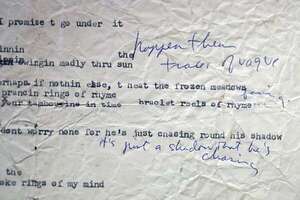 I promise t go under it
innin
the happen then
swingin madly thru sun traces of vague
erhaps if nothin else, t heat the frozen meadows
prancin rings of rhyme
your tambourine in time bracelet reels of rhyme
dont worry none for he's just chasing round his shadow
it's just a shadow that he's
chasing
the
oke rings of my mind